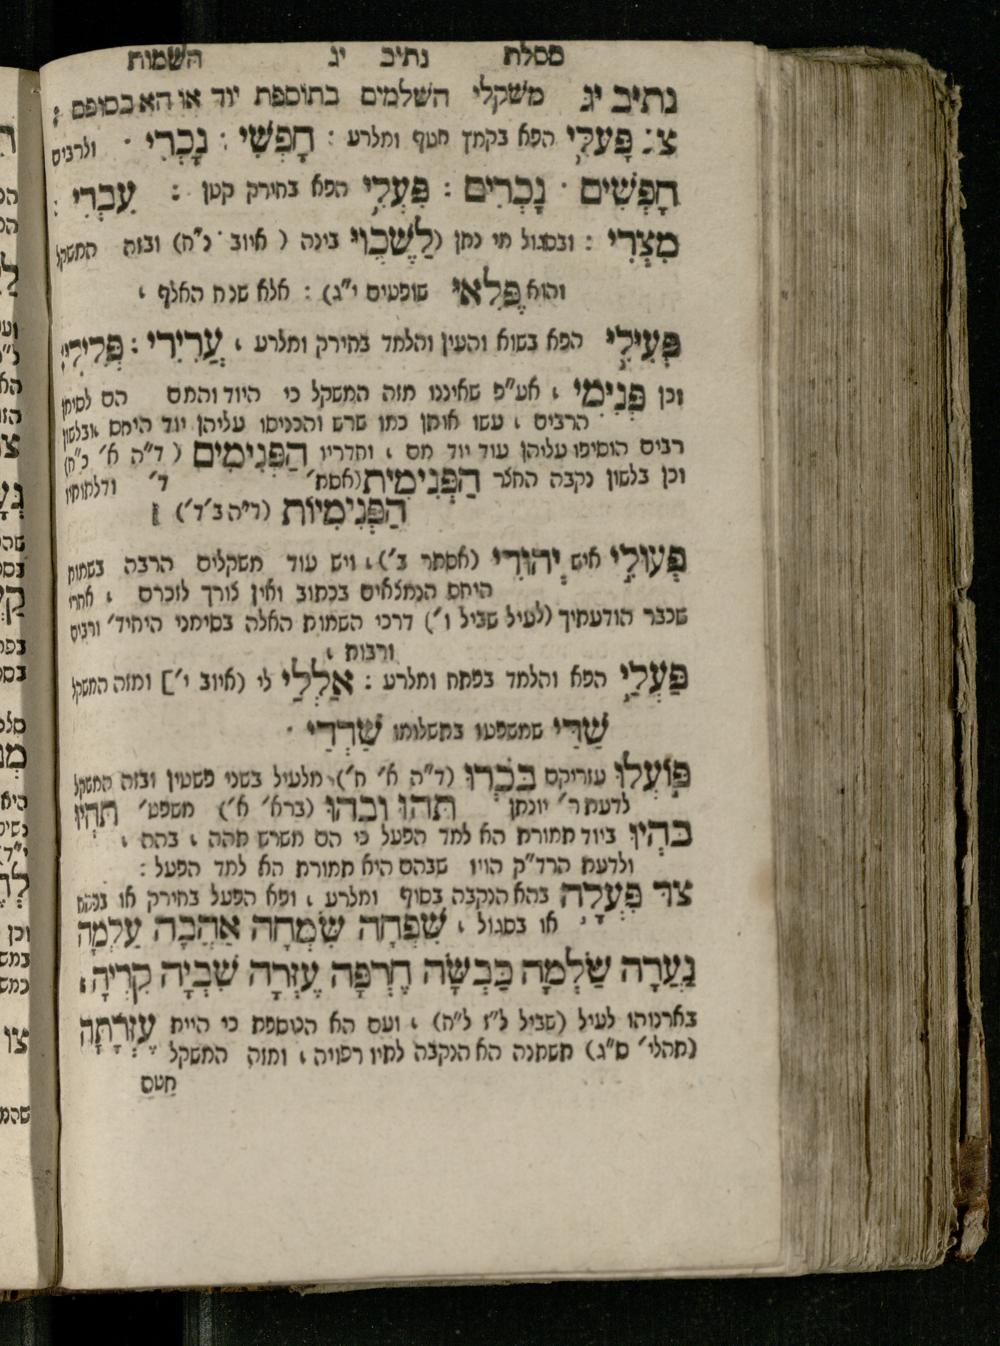 מסלת נתיב יג השמות
נתיב יג משקלי השלמים בתוספת יוד או הא בסופם :
צ: פָּעְלִי הפא בקמץ חטף ומלרע : חָפְשִׁי : נָכְרִי · ולרבים
חָפְשִׁים · נָכְרִים : פִּעְלִי הפא בחירק קטן : עִבְרִי :
מִצְרִי : ובסגול מי נתן (לַשֶּׂכְוִי בינה ( איוב · ל"ח) ובזה המשקל
והוא פֶּלְאִי שופטים י"ג) : אלא שנח האלף ,
פְּעִילִי הפא בשוא והעין והלמד בחירק ומלרע , עֲרִירִי : פְּלִילִי :
וכן פְּנִימִי , אע"פ שאיננו מזה המשקל כי היוד והמם הם לסימן
הרבים , עשו אותן כמו שרש והכניסו עליהן יוד היחם ובלשון
רבים הוסיפו עליהן עוד יוד מם , וחדריו הַפְּנִימִים ( ד"ה א' כ"ח)
וכן בלשון נקבה החצר הַפְּנִימִית (אסת' ד' ודלתותיו
הַפְּנִימִיּוֹת (ד"ה ב' ד')
פְּעוּלִי איש יְהוּדִי (אסתר ב') , ויש עוד משקלים הרבה בשמות
היחם הנמצאים בכתוב ואין צורך לזכרם , אחרי
שכבר הודעתיך (לעיל שביל ו') דרכי השמות האלה בסימני היחיד' ורבים
ורבות ,
פַּעְלַי הפא והלמד בפתח ומלרע : אַלְלַי לי (איוב י'] ומזה המשקל
שַׁדַּי שמשפטו בתשלומו שַׁדְדַי ·
פּוֹעְלוּ עזריקם בֹּכְרוּ (ד"ה א' ח') מלעיל בשני פשטין ובזה המשקל
לדעת ר' יונתן תֹהוּ וָבֹהוּ (ברא' א') משפט' תֹּהְיוּ
בֹּהְיוּ ביוד תמורת הא למד הפעל כי הם משרש תהה , בהה ,
ולדעת הרד"ק הויו שבהם היא תמורת הא למד הפעל :
צד פִּעְלָה בהא הנקבה בסוף ומלרע , ופא הפעל בחירק או בפתח
או בסגול , שִׁפְחָה שִׂמְחָה אַהֲבָה עַלְמָה
נַעֲרָה שַׂלְמָה כַּבְשָׂה חֶרְפָּה עֶזְרָה שִׁבְיָה קִרְיָה ,
בארנוהו לעיל (שביל ל"ז ל"ח) , ועם הא הנוספת כי היית עֶזְרָתָה
(תהלי' ס"ג) תשתנה הא הנקבה לתיו רפויה , ומזה המשקל
חָטָּם